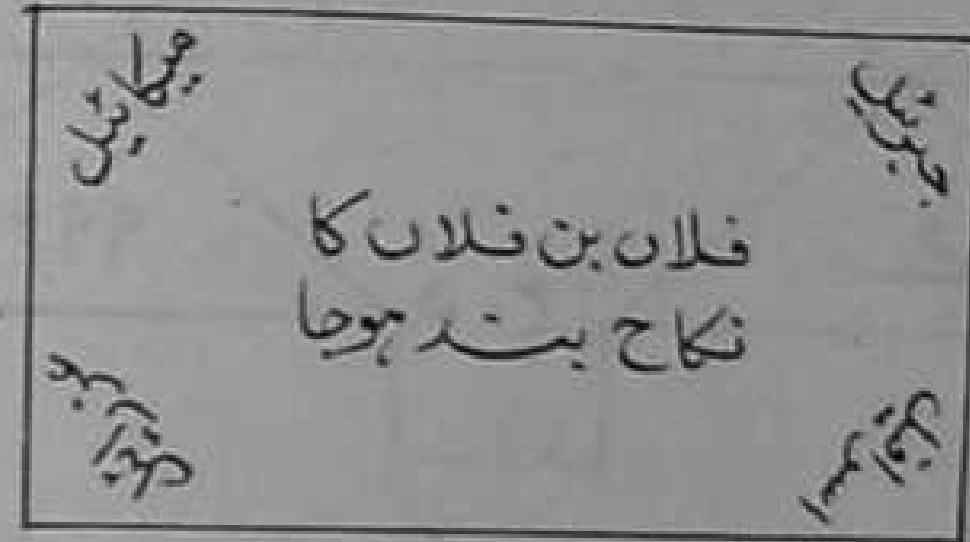 جبرائیل
میکائیل
فلاں بن فلاں کا
نکاح بند ہوجا
اسرافیل